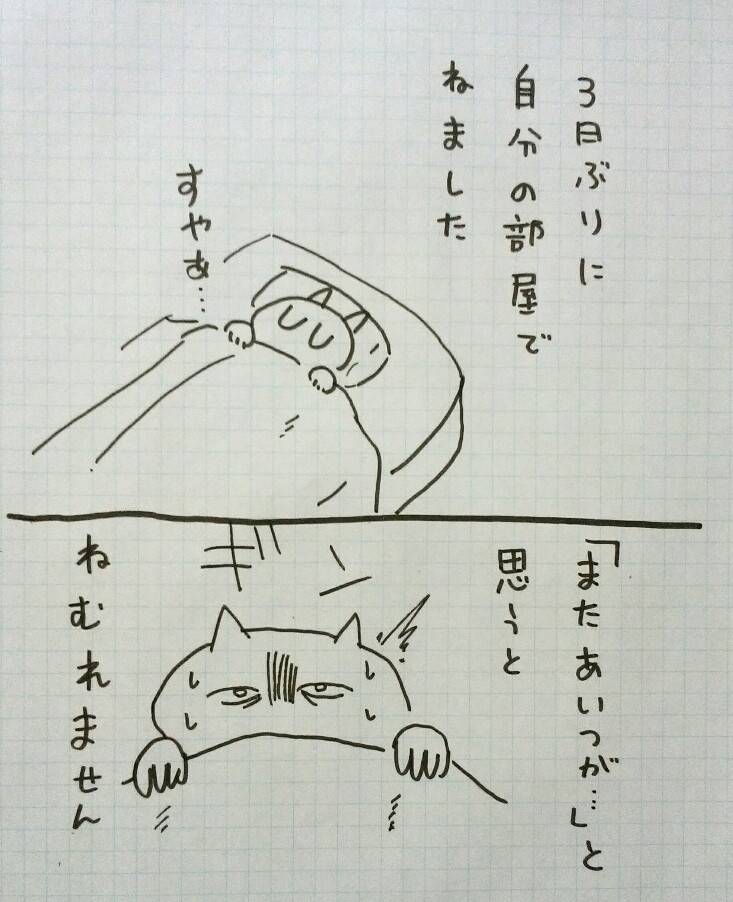 3日ぶりに
自分の部屋で
ねました
すやぁ…
「またあいつが…」と
思うと
ねむれません